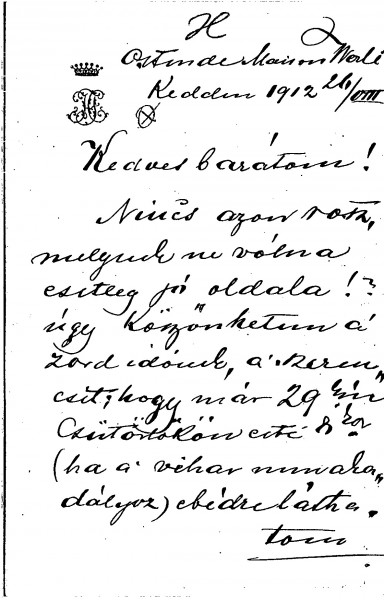 Ostende Maison Werli
Kedden 1912 26/VIII
Kedves barátom!
Nincs azon rosz,
melynek ne vólna
esetleg jó oldala!?
úgy köszönhetem á
zord időnek, á szeren„
csét, hogy már 29 én
Csütörtökön esté 8 kor
(ha á vihar nem aka„
dályoz) ebédre látha„
tom